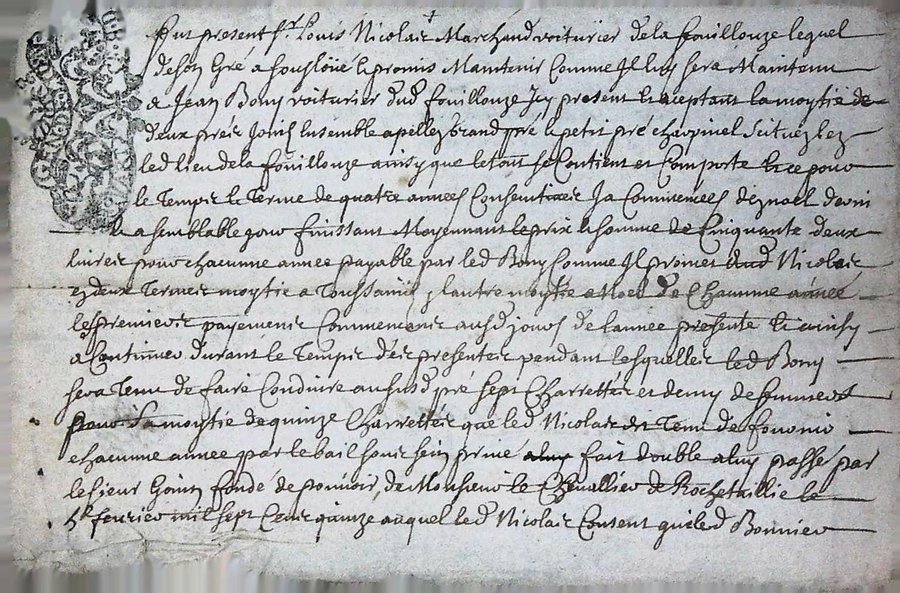 Fut present Sr Louis Nicolas Marchand voiturier de la fouillouze lequel
de son Gré a souslöué & promis Maintenir Comme Il luy sera Maintenu
a Jean Bony voiturier dud fouillouze Icy present & aceptant la moytié de
deux prés Joints Ensemble apellez Grand pré & petit pré charpinel Scituéz lez
led lieu de la fouillouze ainsy que le tout se Contient et Comporte & ce pour
le Temps & Terme de quatre années Consecutives Ja Commencees dez noel
a semblable jour finissant Moyennant le prix & somme de Cinquante deux
livres pour chacunne année payable par led Bony Comme Il promet aud Nicolas
ez deux Termes moytié a Toussaint & lautre moytié a Noel de Chacunne année
les premiers payements Commencants ausd jours de lannee presente & ainsy
a Continuer durant le Temps des presentes pendant lesquelles led Bony
sera Tenu de faire Conduire aususd pré sept Charrettées et demy de fumier
pour sa moytié de quinze Charrettées que led Nicolas est Tenu de fournir
chacunne annee par le bail sous sein privé fait double aluy passé par
le sieur fondé de pouvoir de Monsieur le Chevallier de Rochetaillie le
fevrier mil sept Cent quinze auquel led Nicolas Consent que led Bonnier